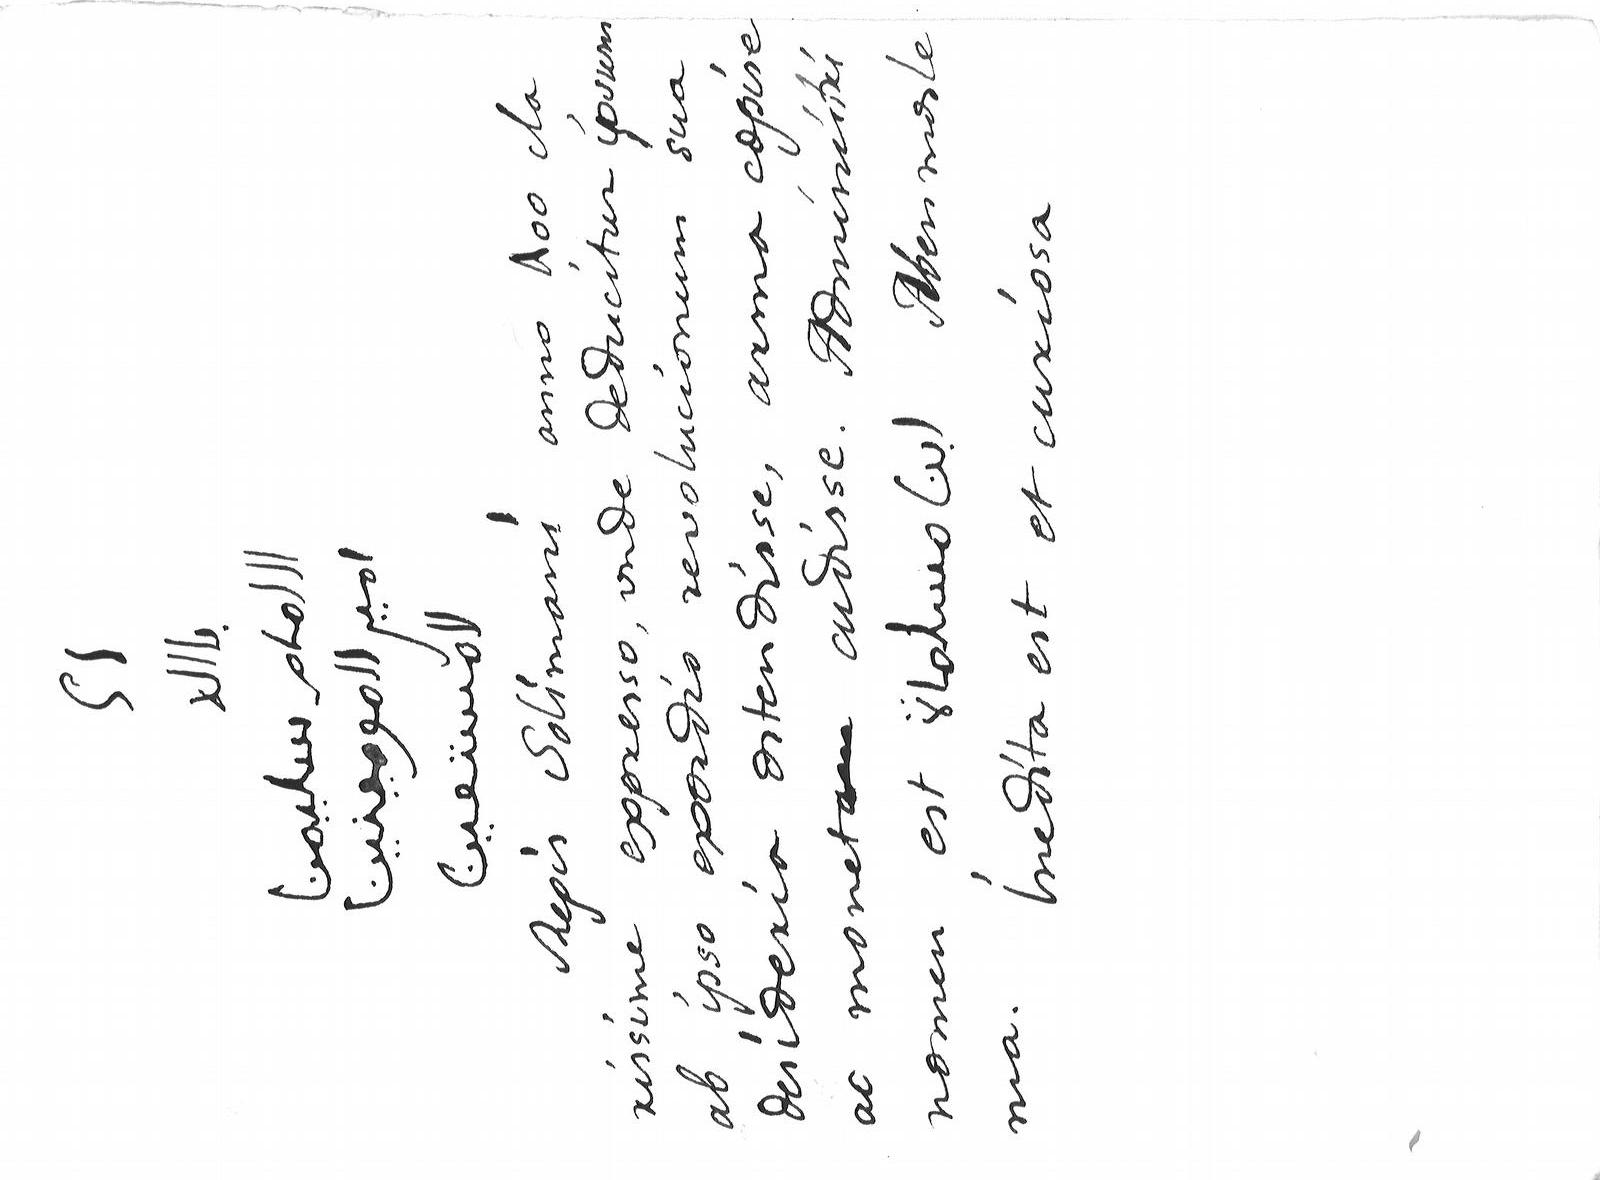 بالله
الامام سليمن
امير المومنين
المستعين
Regis Solimani anno 400 cla
rissime expresso, unde deducitur ipsum
ab ipso exordio revolucionum sua
desideria ostendisse, arma cepise
ac monetam cudisse. Administri
nomen est ابن مسلمة Abenmosle
ma. Inedita est et curiosa